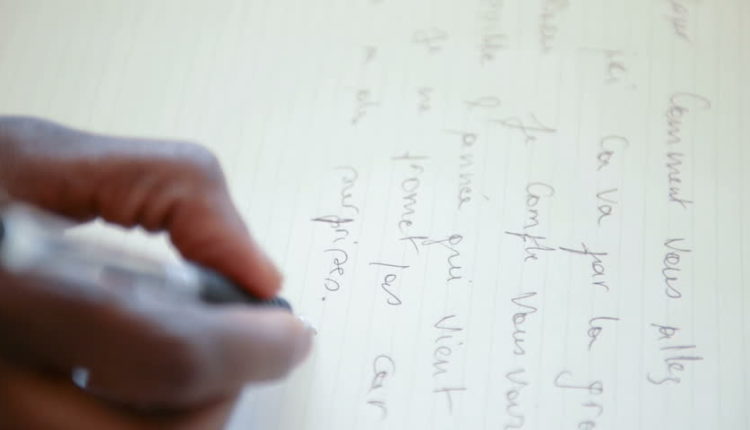 Comment vous alles
ici Ca va par la
Je Compte Vous voir
année qui vient
Je ne promet pas car
a des surprises.